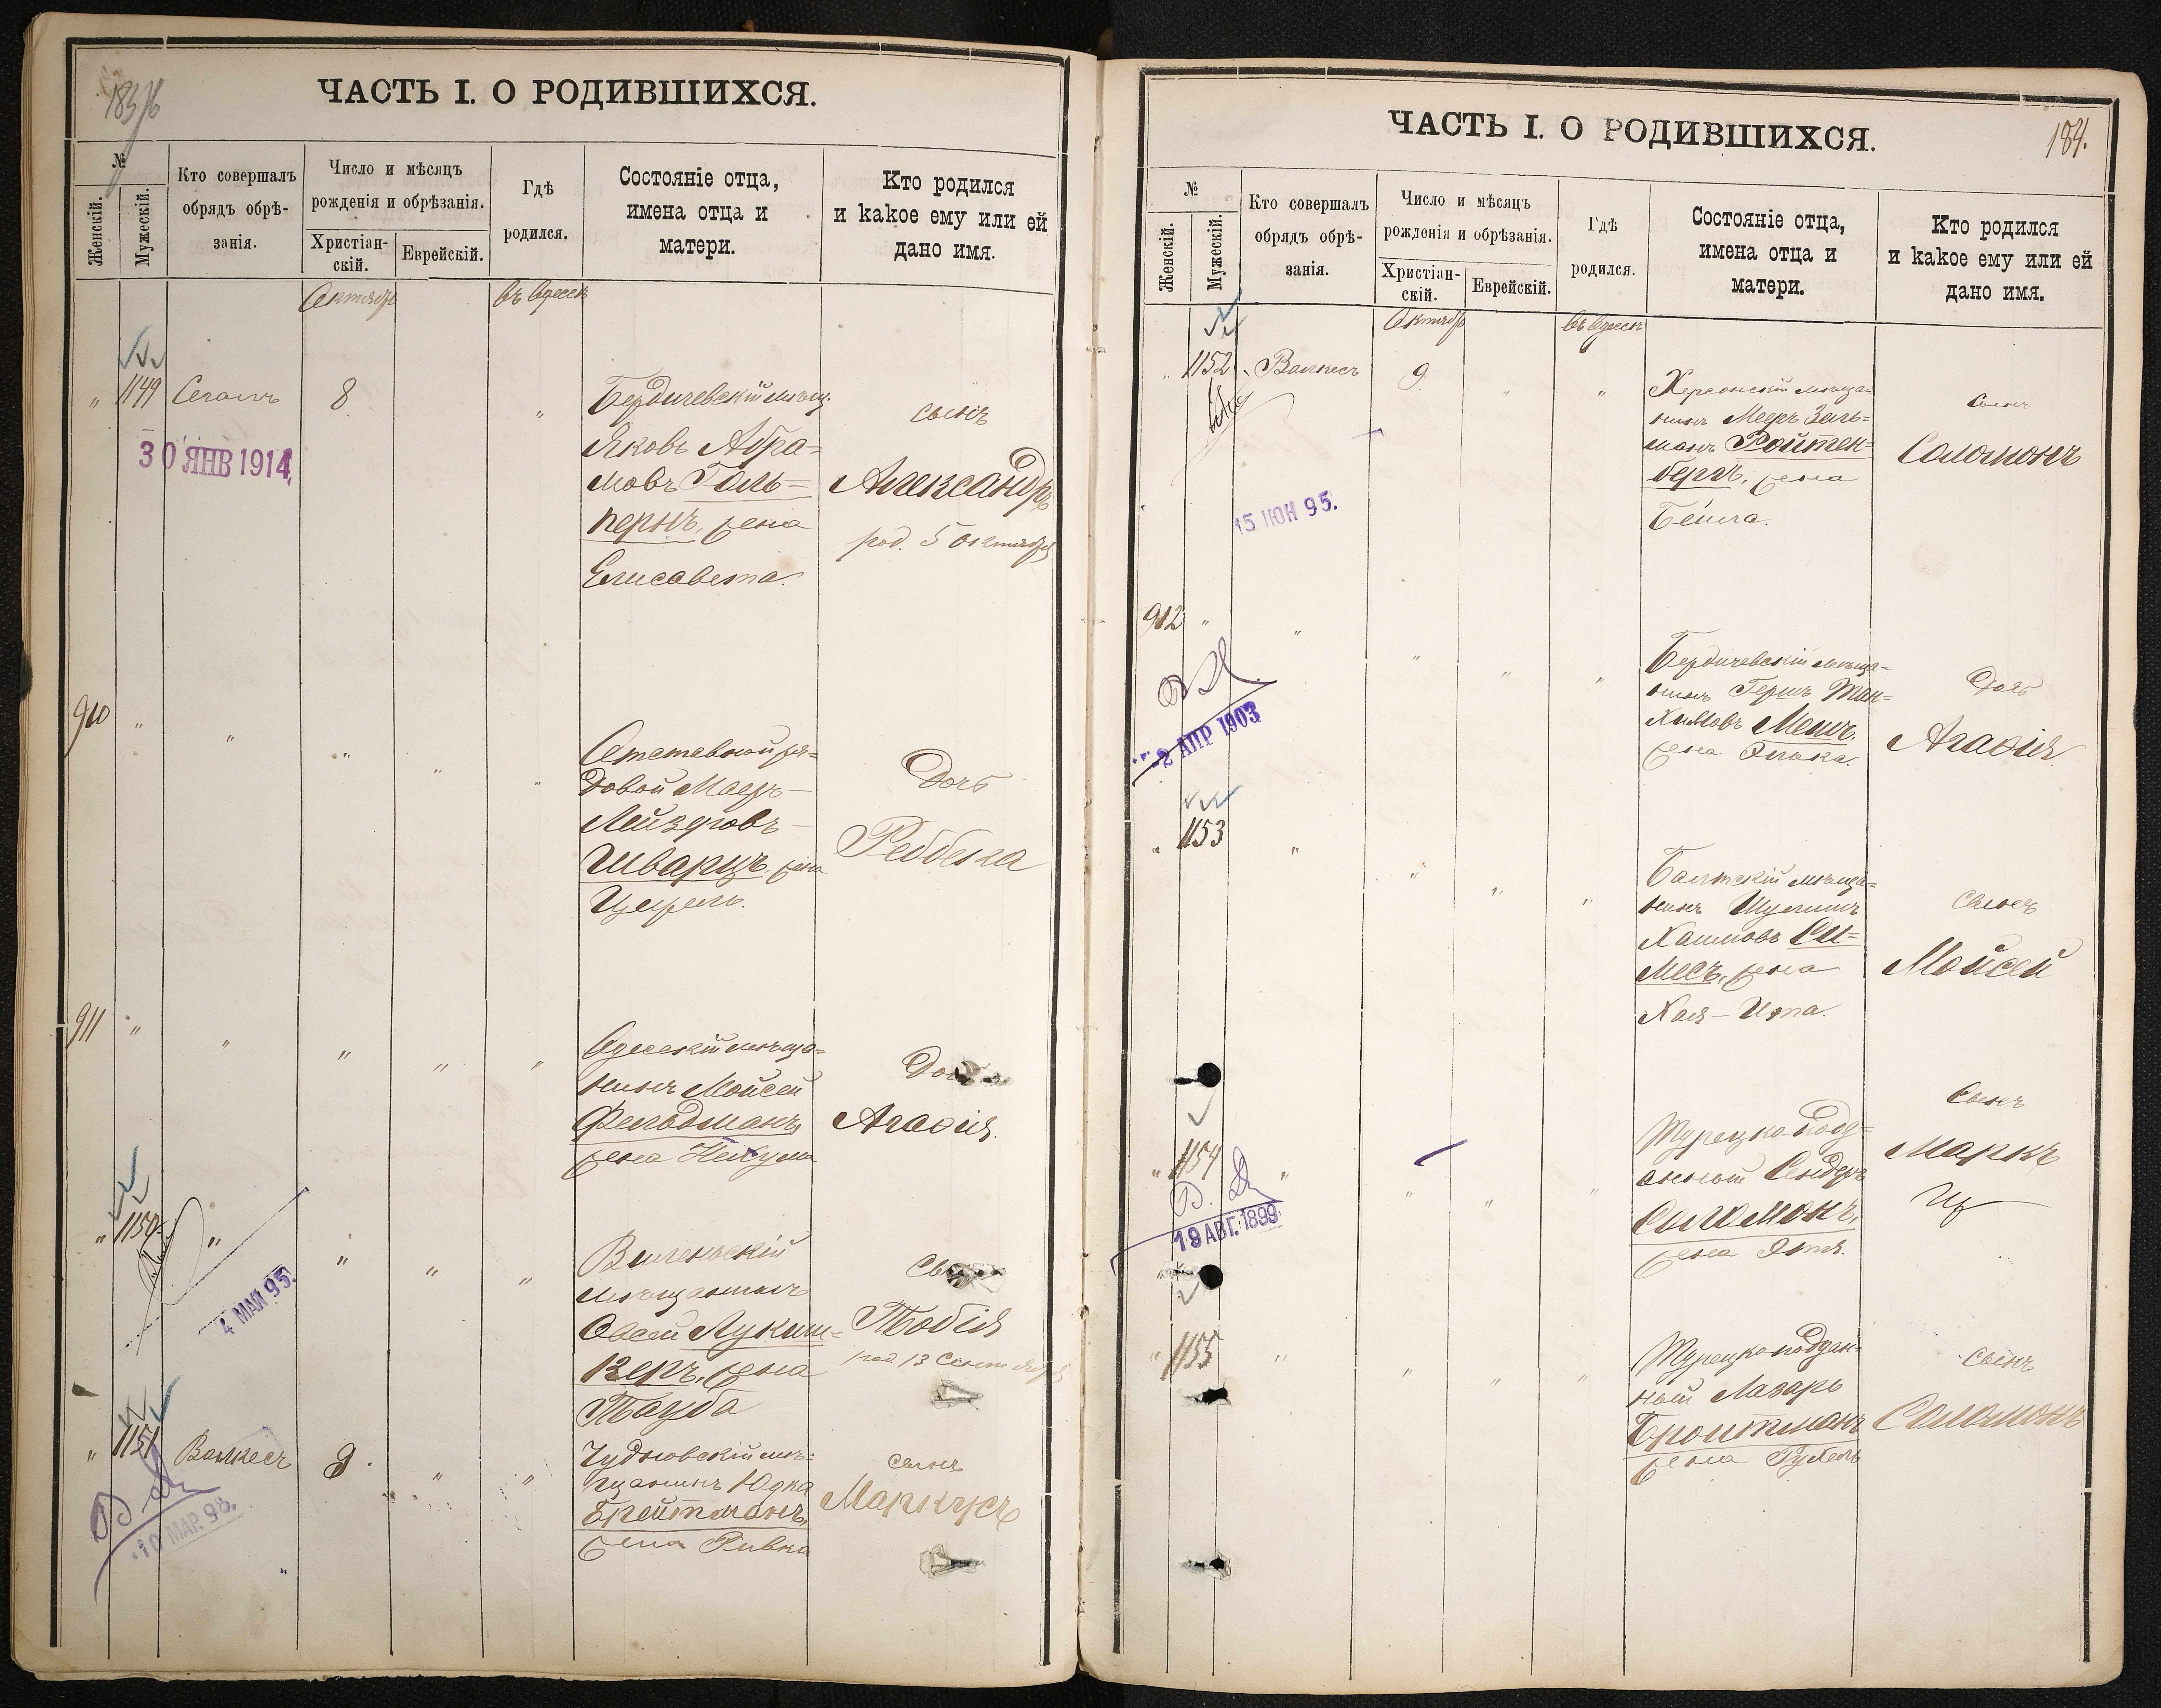 ЧАСТЬ I. О РОДИВШИХСЯ.
№
Женскій.
Мужескій.
Кто совершалъ
обрядъ обрѣ-
занія.
Число и мѣсяцъ
рожденія и обрѣзанія.
Христіан-
скій.
Еврейскій.
Гдѣ
родился.
Состояніе отца,
имена отца и
матери.
Кто родился
и какое ему или ей
дано имя.
Октябр
въ Одессѣ
" 1149 Сегалъ 8 "
30 ЯНВ 1914
Бердичевскій мѣщ.
Яковъ Абра=
мовъ Галь=
перинъ, жена
Елисавета.
сынъ
Александръ
род. 5 Октября
910 " " " " "
Отставной ря=
довой Маеръ
Лейзеровъ
Шварцъ, жена
Цирель.
Дочь
Реббека
911 " " " " "
Одесскій мѣща=
нинъ Мойсей
Фельдманъ,
жена Нехума
Дочь
Агафія.
" 1150 " " " "
4 МАЙ 95.
Виленскій
мѣщанинъ
Овсей Лукиш=
керъ, жена
Тауба
Сынъ
Тобія
род. 13 Сентября
" 1151 Валкесъ 9. " "
10 МАР. 98.
Чудновскій мѣ=
щанинъ Юдка
Брейтманъ,
жена Ривка
сынъ
Маркусъ
ЧАСТЬ I. О РОДИВШИХСЯ.
184.
№
Женскій.
Мужескій.
Кто совершалъ
обрядъ обрѣ-
занія.
Число и мѣсяцъ
рожденія и обрѣзанія.
Христіан-
скій.
Еврейскій.
Гдѣ
родился.
Состояніе отца,
имена отца и
матери.
Кто родился
и какое ему или ей
дано имя.
Октябр
въ Одессѣ
" 1152 Валкесъ 9 " "
15 ИЮН 95.
Херсонскій мѣща=
нинъ Мееръ Заль=
манъ Ройтен=
бергъ, жена
Бейла.
Сынъ
Соломонъ
912 " " " " "
2 АПР 1903
Бердичевскій мѣща=
нинъ Гершъ
жена
Дочь
Агафія
" 1153 " " " "
Балтскій мѣща=
нинъ Шулимъ
Хаимовъ Си=
месъ, жена
Хая-Ита.
Сынъ
Мойсей
" 1154 " " " "
19 АВГ. 1899
Турецкоподд=
анный Сендеръ
Соломонъ,
жена
Сынъ
Маркъ
" 1155 " " " "
Турецкоподдан=
ный Лазарь
Бройтманъ
жена Рухель
сынъ
Соломонъ